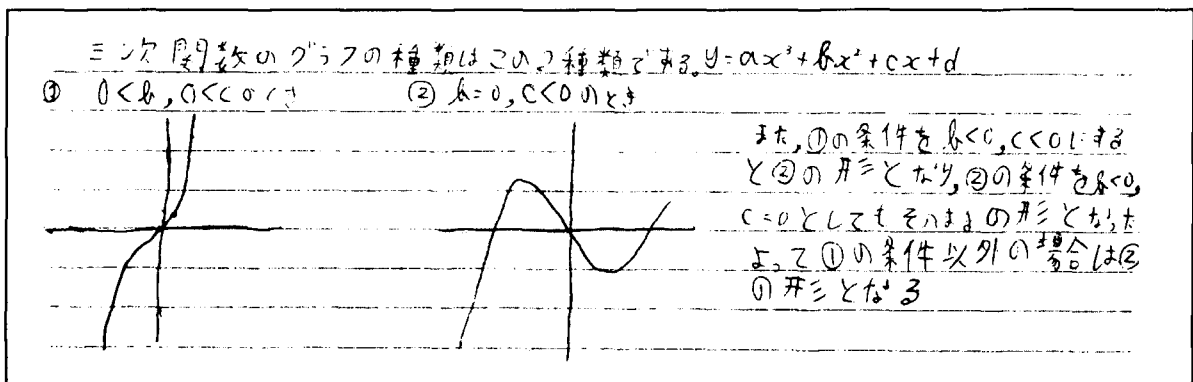 三次関数のグラフの種類はこの2種類である。y=ax³+bx²+cx+d
① 0<b, 0<cのとき
② b=0, c<0のとき
また,①の条件をb<0,c<0にする
と②の形となり,②の条件をb<0,
c=0としてもそのままの形となった
よって①の条件以外の場合は②
の形となる